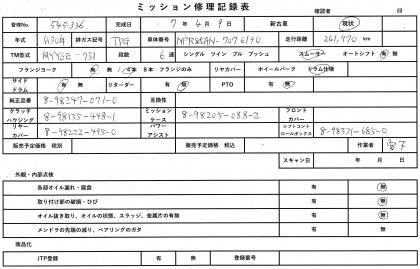 ミッション修理記録表
確認者 印
管理No. 545-336 完成日 7 年 4 月 9 日 新古車 現状
年式 H30年 排ガス記号 TPG 車体番号 NPR85AN-7076190 走行距離 261,970 km
TM型式 MYY6E-731 段数 6 速 シングル ツイン プル プッシュ スムーサ オートシフト 有 無
フランジヨーク 有 無 / 4本 8本 フランジのみ リヤカバー ホイールパーク ドラム仕様
サイドドラム 有 無 リターダー 有 無 PTO 有 無
純正品番 8-98247-071-0 互換性
クラッチハウジング 8-98135-448-1 ミッションケース 8-98205-088-2 フロントカバー
リヤーカバー 8-98222-495-0 パワーアシスト シフトコントロールボックス 8-98371-685-0
販売予定価格 税別 販売予定価格 税込 作業者
スキャン日 年 月 日
外観・内部点検
各部オイル漏れ・腐食 有 無
取り付け部の破損・ひび 有 無
オイル抜き取り、オイルの状態、スラッジ、金属片の有無 有 無
メンドラの先端の減り、ベアリングのガタ 有 無
商品化
JTP登録 有 無 登録番号